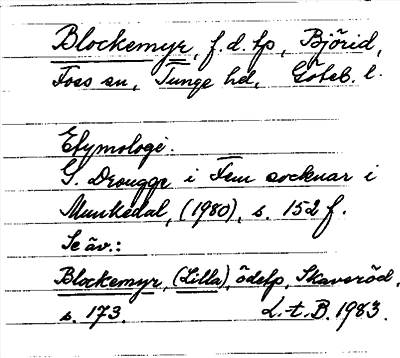 Blockemyr, f.d. lp, Björid,
Foss sn, Tunge hd, Göteb. l.
Etymologi.
G. Drougge i Fem socknar i
Munkedal, (1980), s. 152 f.
Se äv.:
Blockemyr, (Lilla), ödelp, Skaveröd,
s. 173. L.t.B. 1983.